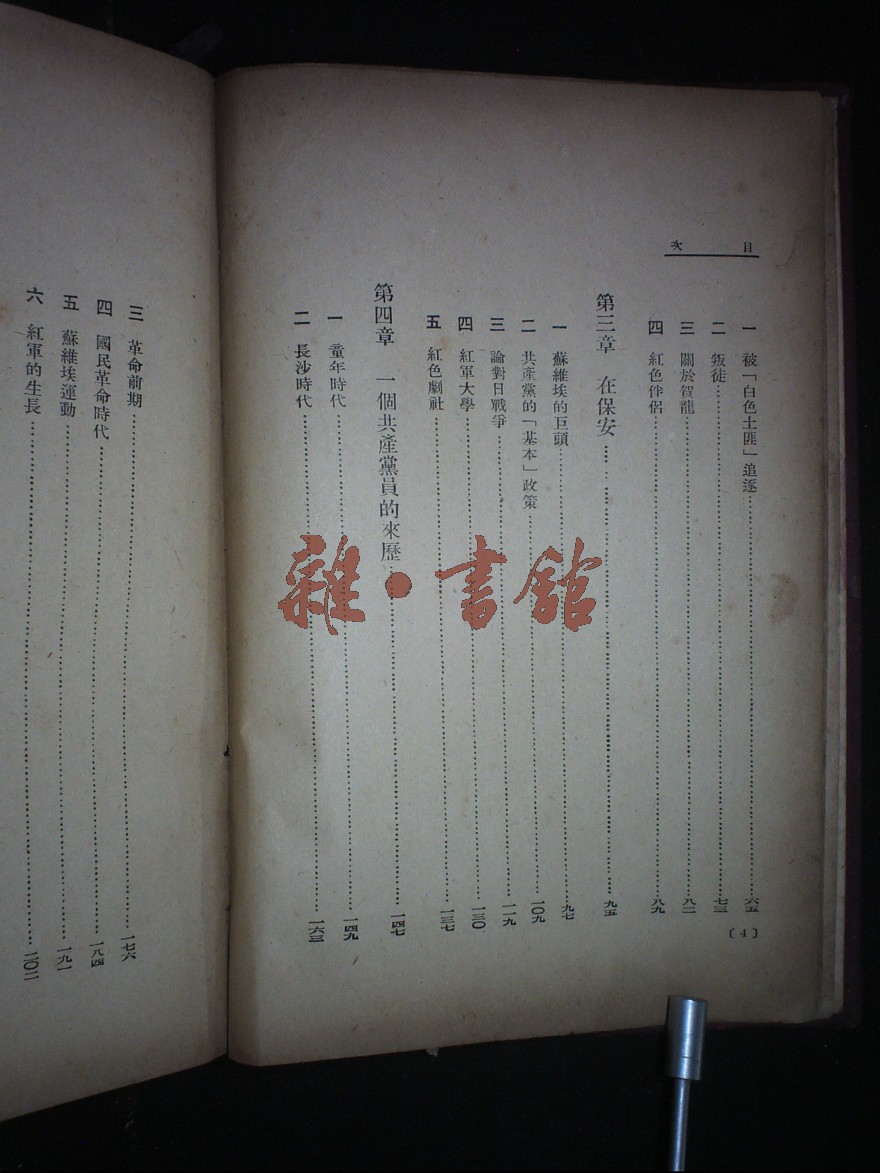 目次
一 被「白色土匪」追逐……六五
二 叛徒……七三
三 關於賀龍……八二
四 紅色伴侶……八九
第三章 在保安……九五
一 蘇維埃的巨頭……九七
二 共產黨的「基本」政策……一〇九
三 論對日戰爭……一一九
四 紅軍大學……一三〇
五 紅色劇社……一三七
第四章 一個共產黨員的來歷……一四七
一 童年時代……一四九
二 長沙時代……一六三
〔4〕
三 革命前期……一七六
四 國民革命時代……一八四
五 蘇維埃運動……一九一
六 紅軍的生長……二〇二
雜·書館